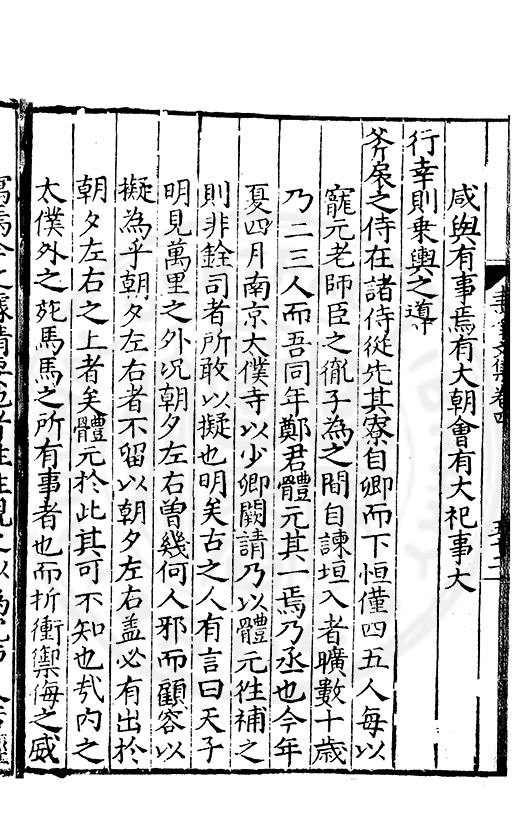 咸與有事焉有大朝會有大祀事大
行幸則乗輿之導
斧扆之侍在諸侍從先其寮自卿而下恒僅四五人每以
寵元老師臣之胤子為之間自諫垣入者曠數十歲
乃二三人而吾同年鄭君體元其一焉乃丞也今年
夏四月南京太僕寺以少卿闕請乃以體元徃補之
則非銓司者所敢以擬也明矣古之人有言曰天子
明見萬里之外况朝夕左右曽幾何人邪而顧容以
擬為乎朝夕左右者不留以朝夕左右盖必有出於
朝夕左右之上者矣體元於此其可不知也㢤内之
太僕外之苑馬馬之所有事者也而折衝禦侮之威